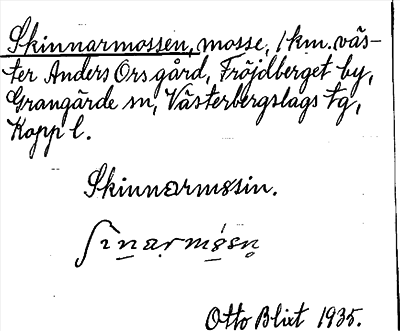 Skinnarmossen, mosse, 1 km. väs-
ter Anders Ors gård, Fröjdberget by,
Grangärde sn, Västerbergslags tg,
Kopp l.
Skinnarmosin.
Otto Blixt 1935.